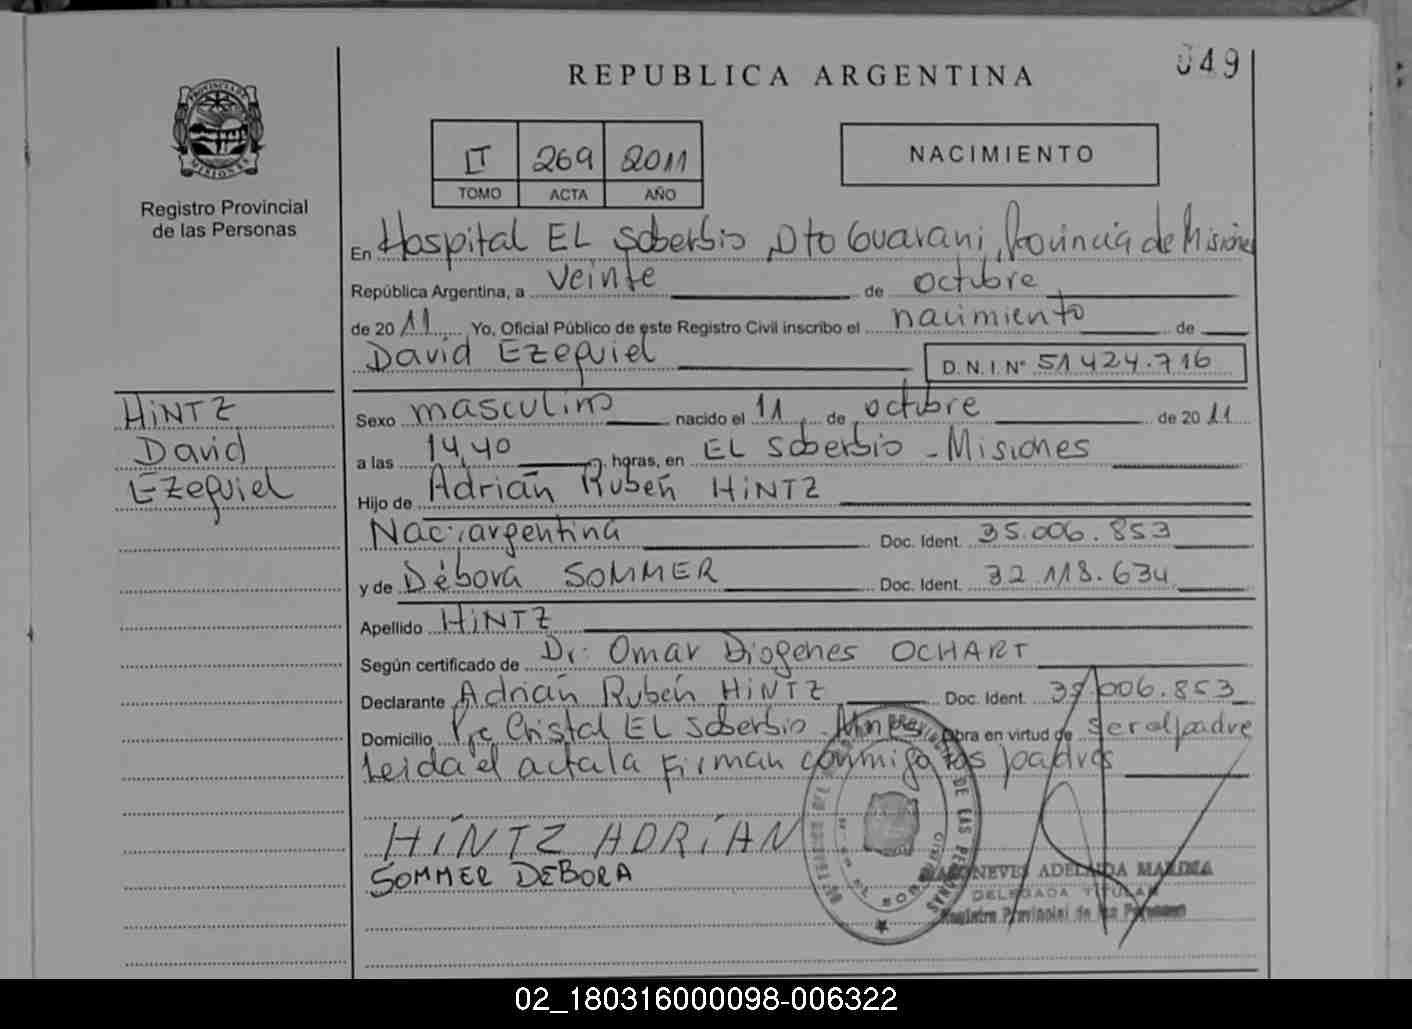 049
REPUBLICA ARGENTINA
PROVINCIA DE MISIONES
Registro Provincial
de las Personas
II 269 2011
TOMO ACTA AÑO
NACIMIENTO
En Hospital EL Soberbio, Dto Guarani, Provincia de Misiones
República Argentina, a veinte de octubre
de 2011 Yo, Oficial Público de este Registro Civil inscribo el nacimiento de
David Ezequiel D.N.I. Nº 51424.716
HiNTZ
David
Ezequiel
Sexo masculino nacido el 11 de octubre de 2011
a las 14,40 horas, en EL Soberbio - Misiones
Hijo de Adrián Rubén HiNTZ
Nac: argentina Doc. Ident. 35.006.853
y de Débora SOMMER Doc. Ident. 32.118.634
Apellido HiNTZ
Según certificado de Dr: Omar Diogenes OCHART
Declarante Adrián Rubén HiNTZ Doc. Ident. 35.006.853
Domicilio Pje Cristal EL Soberbio Mnes Obra en virtud de ser el padre
Leida el acta la firman conmigo los padres
HiNTZ ADRiAN
SOMMER DEBORA
NEVES ADELAIDA MARINA
DELEGADA TITULAR
Registro Provincial de las Personas
02_180316000098-006322